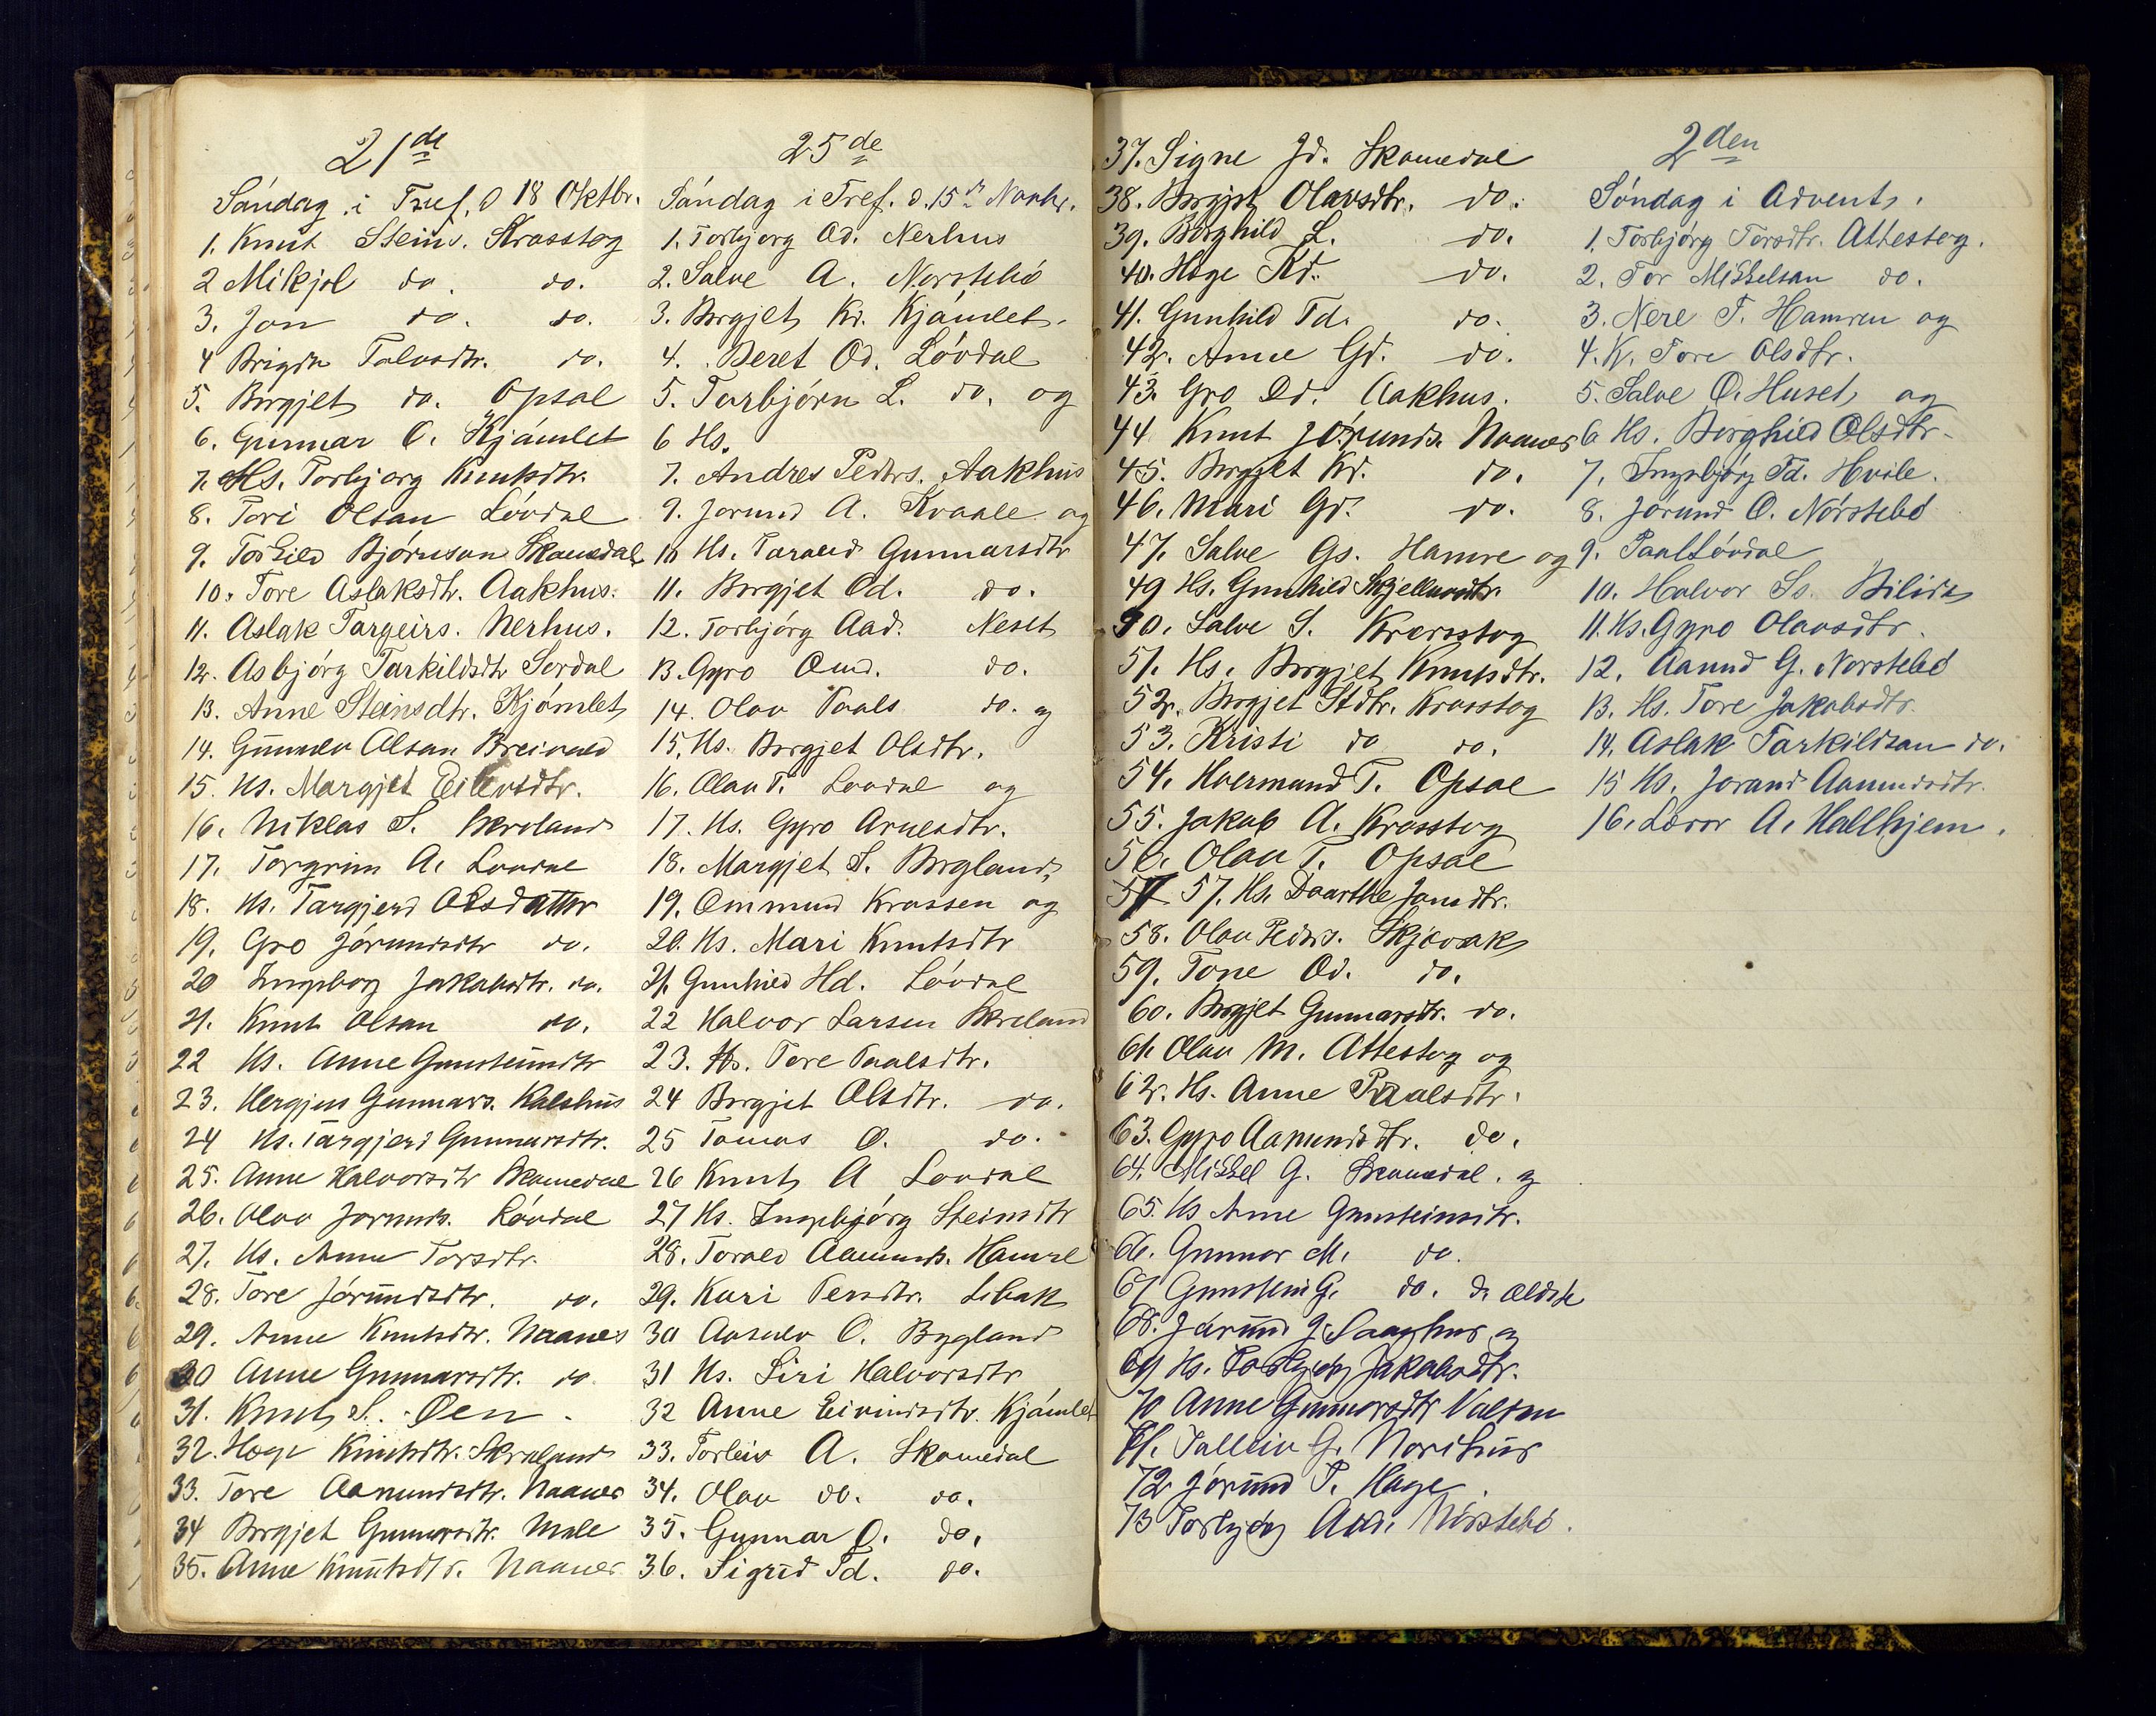 21de
Söndag i Tref. d 18 Oktbr.
1. Knut Steins. Krosstog
2 Mikjel do. do.
3. Jon do. do.
4 Brigita Talvsdtr. do.
5. Borgjet do. Opsal
6. Gunnar O. Kjömlet
7. Hs. Torbjorg Knutsdtr.
8. Tori Olsan Lövdal
9. Torkild Björnson Skomedal
10. Tore Aslaksdtr. Aakhus.
11. Aslak Targeirs. Nerhus.
12. Asbjörg Tarkildsdtr Serdal
13. Anne Steinsdtr. Kjömlet
14. Gunnulv Olsan Breivold
15. Hs. Margjet Eilevsdtr.
16. Niklas S. Bereland
17. Torgrim A. Lovdal
18. Hs. Targjerd Olsdatter
19. Gro Jörundsdtr do.
20 Ingeborg Jakobsdtr. do.
21. Knut Olsan do.
22 Hs. Anne Gunsteinsdtr
23. Hergjus Gunnars. Kaleshus
24 Hs. Targjerd Gunnarsdtr.
25. Anne Halvorsdtr Skomedal
26. Olav Jorunds. Lövdal
27. Hs. Anne Torsdtr.
28. Tore Jörundsdtr. do.
29. Anne Knutsdtr. Naanes
30 Anne Gunnarsdtr. do.
31. Knut S. Oen.
32. Hege Knutsdtr. Skreland
33. Tore Aanundsdtr. Naanes
34 Borgjet Gunnarsdtr. Mole
35. Anne Knutsdtr. Naanes
25de
Söndag i Tref. d. 15de Novbr.
1. Torbjorg Od. Nerhus
2. Salve A. Norstebö
3. Borgjet Kr. Kjömlet
4. Beret Od. Lövdal
5. Tarbjörn L. do. og
6 Hs.
7. Andres Peders. Aakhus
9. Jorund A. Kvaale og
10 Hs. Tarald Gunnarsdtr
11. Borgjet Od. do.
12. Torbjörg Aad. Neset
13. Gyro Omd. do.
14. Olav Paals do. og
15. Hs. Borgjet Olsdtr.
16. Olav T. Lovdal og
17. Hs. Gyro Arnesdtr.
18. Margjet S. Bygland
19. Ommund Krossen og
20. Hs. Mari Knutsdtr
21. Gunhild Hd. Lövdal
22 Halvor Larsen Bereland
23. Hs. Tore Paalsdtr.
24 Borgjet Olsdtr. do.
25 Tomas O. do.
26 Knut A Lovdal
27 Hs. Ingebjörg Steinsdtr
28. Torald Aanunds. Hamre
29. Kari Persdtr. Libak
30 Aasulv O. Bygland
31 Hs. Siri Halvorsdtr
32 Anne Eivindsdtr. Kjömlet
33. Torleiv A. Skomedal
34. Olav do. do.
35. Gunnar O. do.
36. Sigrid Td. do.
37. Signe Jd. Skomedal
38. Borgjet Olavsdtr. do.
39. Borghild L. do.
40. Hege Kd. do.
41. Gunhild Td. do.
42. Anne Gd. do.
43. Gro Od. Aakhus.
44 Knut Jörunds. Naanes
45. Borgjet Kd. do.
46. Mari Gd. do.
47. Salve Gs. Hamre og
49 Hs. Gunhild Skjellevsdtr.
50. Salve S. Krosstog
51. Hs. Borgjet Knutsdtr.
52. Borgjet Stdtr. Krosstog
53. Kristi do do.
54. Hvermund T. Opsal
55. Jakob A. Krosstog
56. Olav T. Opsal
57 57. Hs. Daarthe Jonsdtr.
58. Olav Peders. Skjevrak
59. Tone Od. do.
60. Borgjet Gunnarsdtr. do.
61. Olav M. Attestog og
62. Hs. Anne Paalsdtr.
63. Gyro Aanundsdtr. do.
64. Mikkel G. Skomedal. og
65. Hs Anne Gunsteinsdtr.
66. Gunnar M. do.
67 Gunstein G. do. d. ældste
68. Jörund J. Saaghus og
69 Hs. Torbjörg Jakobsdtr.
70 Anne Gunnarsdtr Valem
71. Talleiv G. Norihus
72 Jörund P. Hage.
73 Torbjörg Aad. Nörstebö.
2den
Söndag i Advent.
1. Torbjörg Torsdtr. Attestog.
2. Tor Mikkelsan do.
3. Nere T. Hamren og
4. K. Tore Olsdtr.
5. Salve O. Huset og
6 Hs. Borghild Olsdtr.
7. Ingebjörg Td. Hvile.
8. Jörund O. Nörstebö
9. Paal Lövdal
10. Halvor Ss. Bilida
11. Hs. Gyro Olavsdtr.
12. Aanund G. Norstebö
13. Hs. Tore Jakobsdtr.
14. Aslak Tarkildsan do.
15 Hs. Jorand Aanundsdtr.
16. Levor A. Hallhjem.